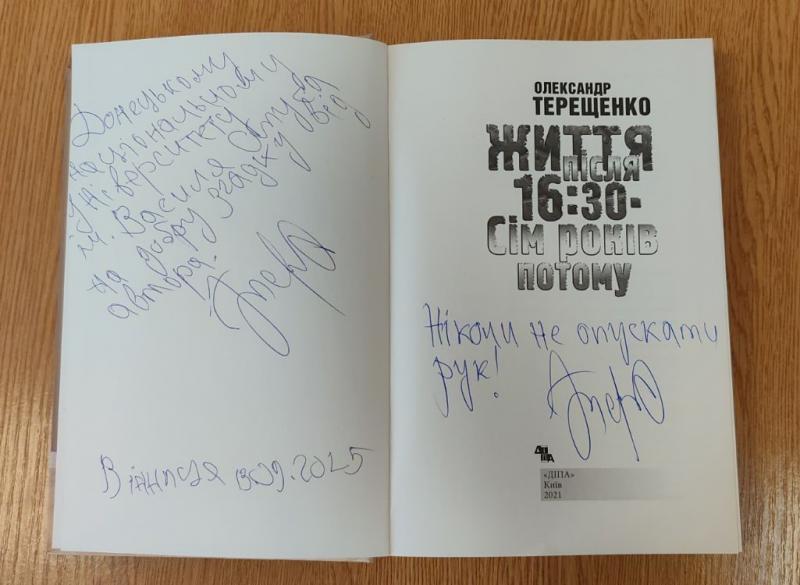 Донецькому
національному
університету
ім. Василя Стуса
на добру згадку від
автора.
Вінниця 2025
ОЛЕКСАНДР
ТЕРЕЩЕНКО
ЖИТТЯ
ПІСЛЯ
16:30-
Сім років
потому
Ніколи не опускати
рук!
ДІПА
«ДІПА»
Київ
2021